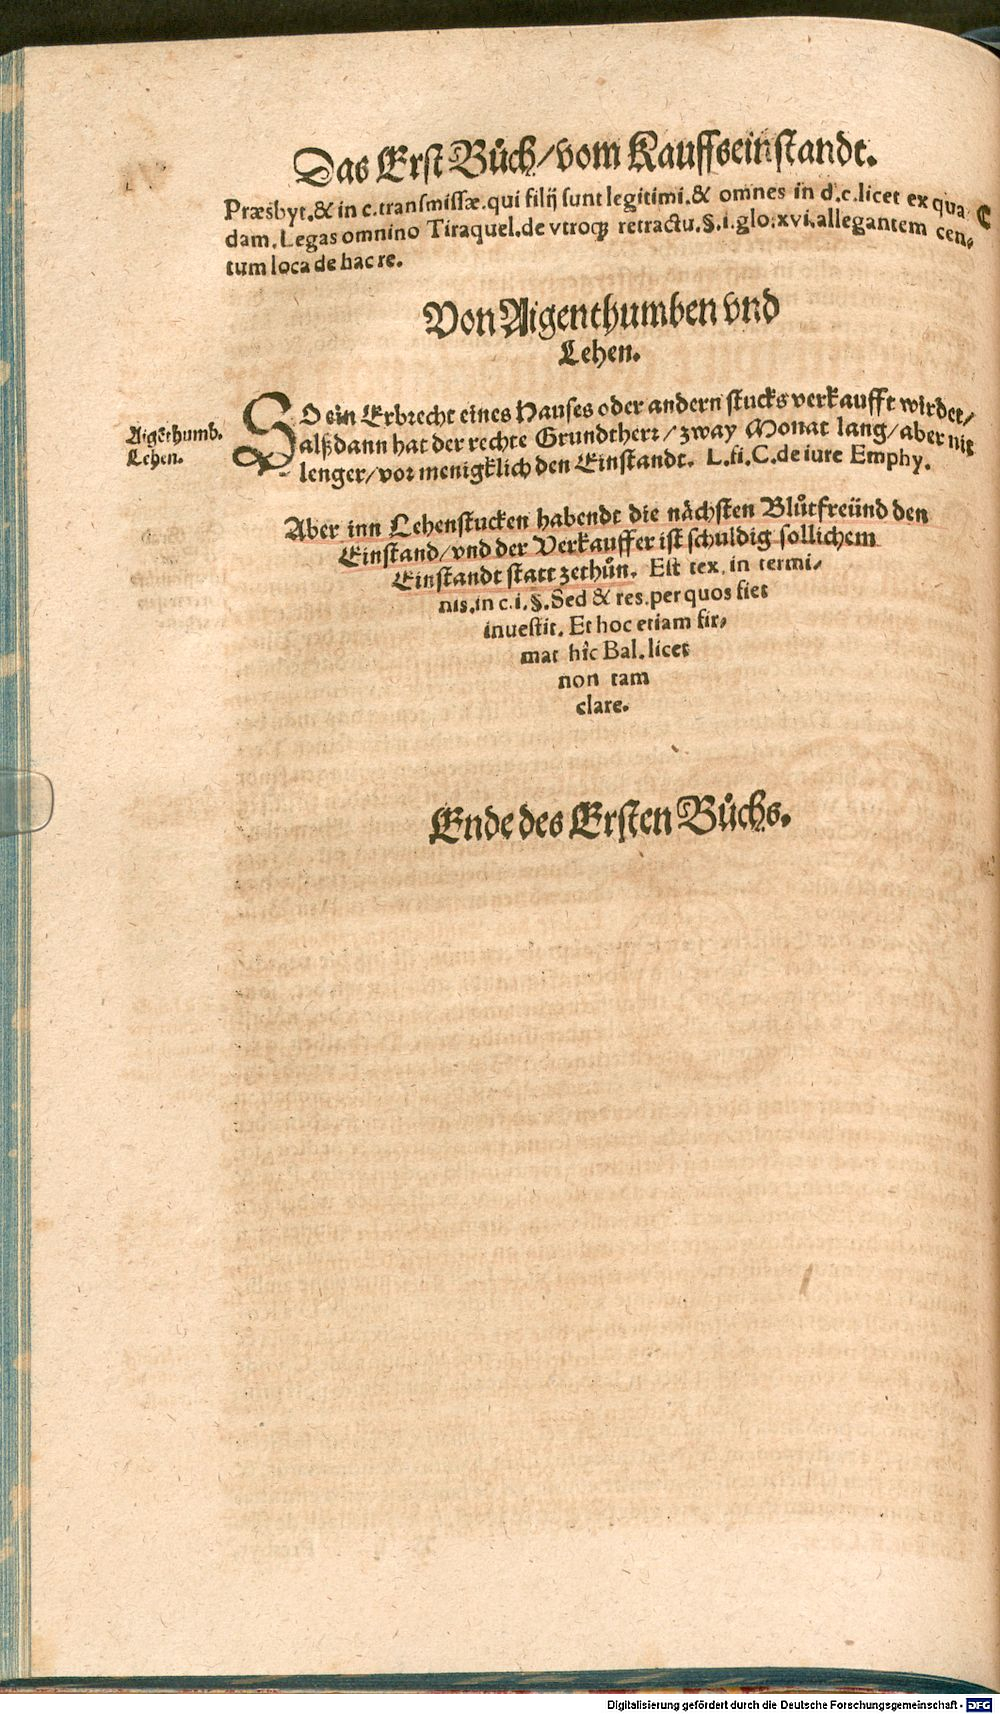 Das Erst Bůch/vom Kauffseinstandt.
Præsbyt.& in c.transmissæ.qui filij sunt legitimi.& omnes in d.c.licet ex qua
dam.Legas omnino Tiraquel.de vtroqꝫ retractu.§.i.glo.xvi.allegantem cen,
tum loca de hac re.
Von Aigenthumben vnd
Lehen.
Aigēthumb.
Lehen.
SO ein Erbrecht eines Hauses oder andern stucks verkaufft wirdet/
alßdann hat der rechte Grundtherr/zway Monat lang/aber nit
lenger/vor menigklich den Einstandt. L.fi.C.de iure Emphy.
Aber inn Lehenstucken habendt die nächsten Blůtfreünd den
Einstand/vnd der Verkauffer ist schuldig sollichem
Einstandt statt zethůn. Est tex. in termi,
nis.in c.i.§.Sed & res.per quos fiet
inuestit. Et hoc etiam fir,
mat hîc Bal.licet
non tam
clare.
Ende des Ersten Bůchs.
Digitalisierung gefördert durch die Deutsche Forschungsgemeinschaft - DFG